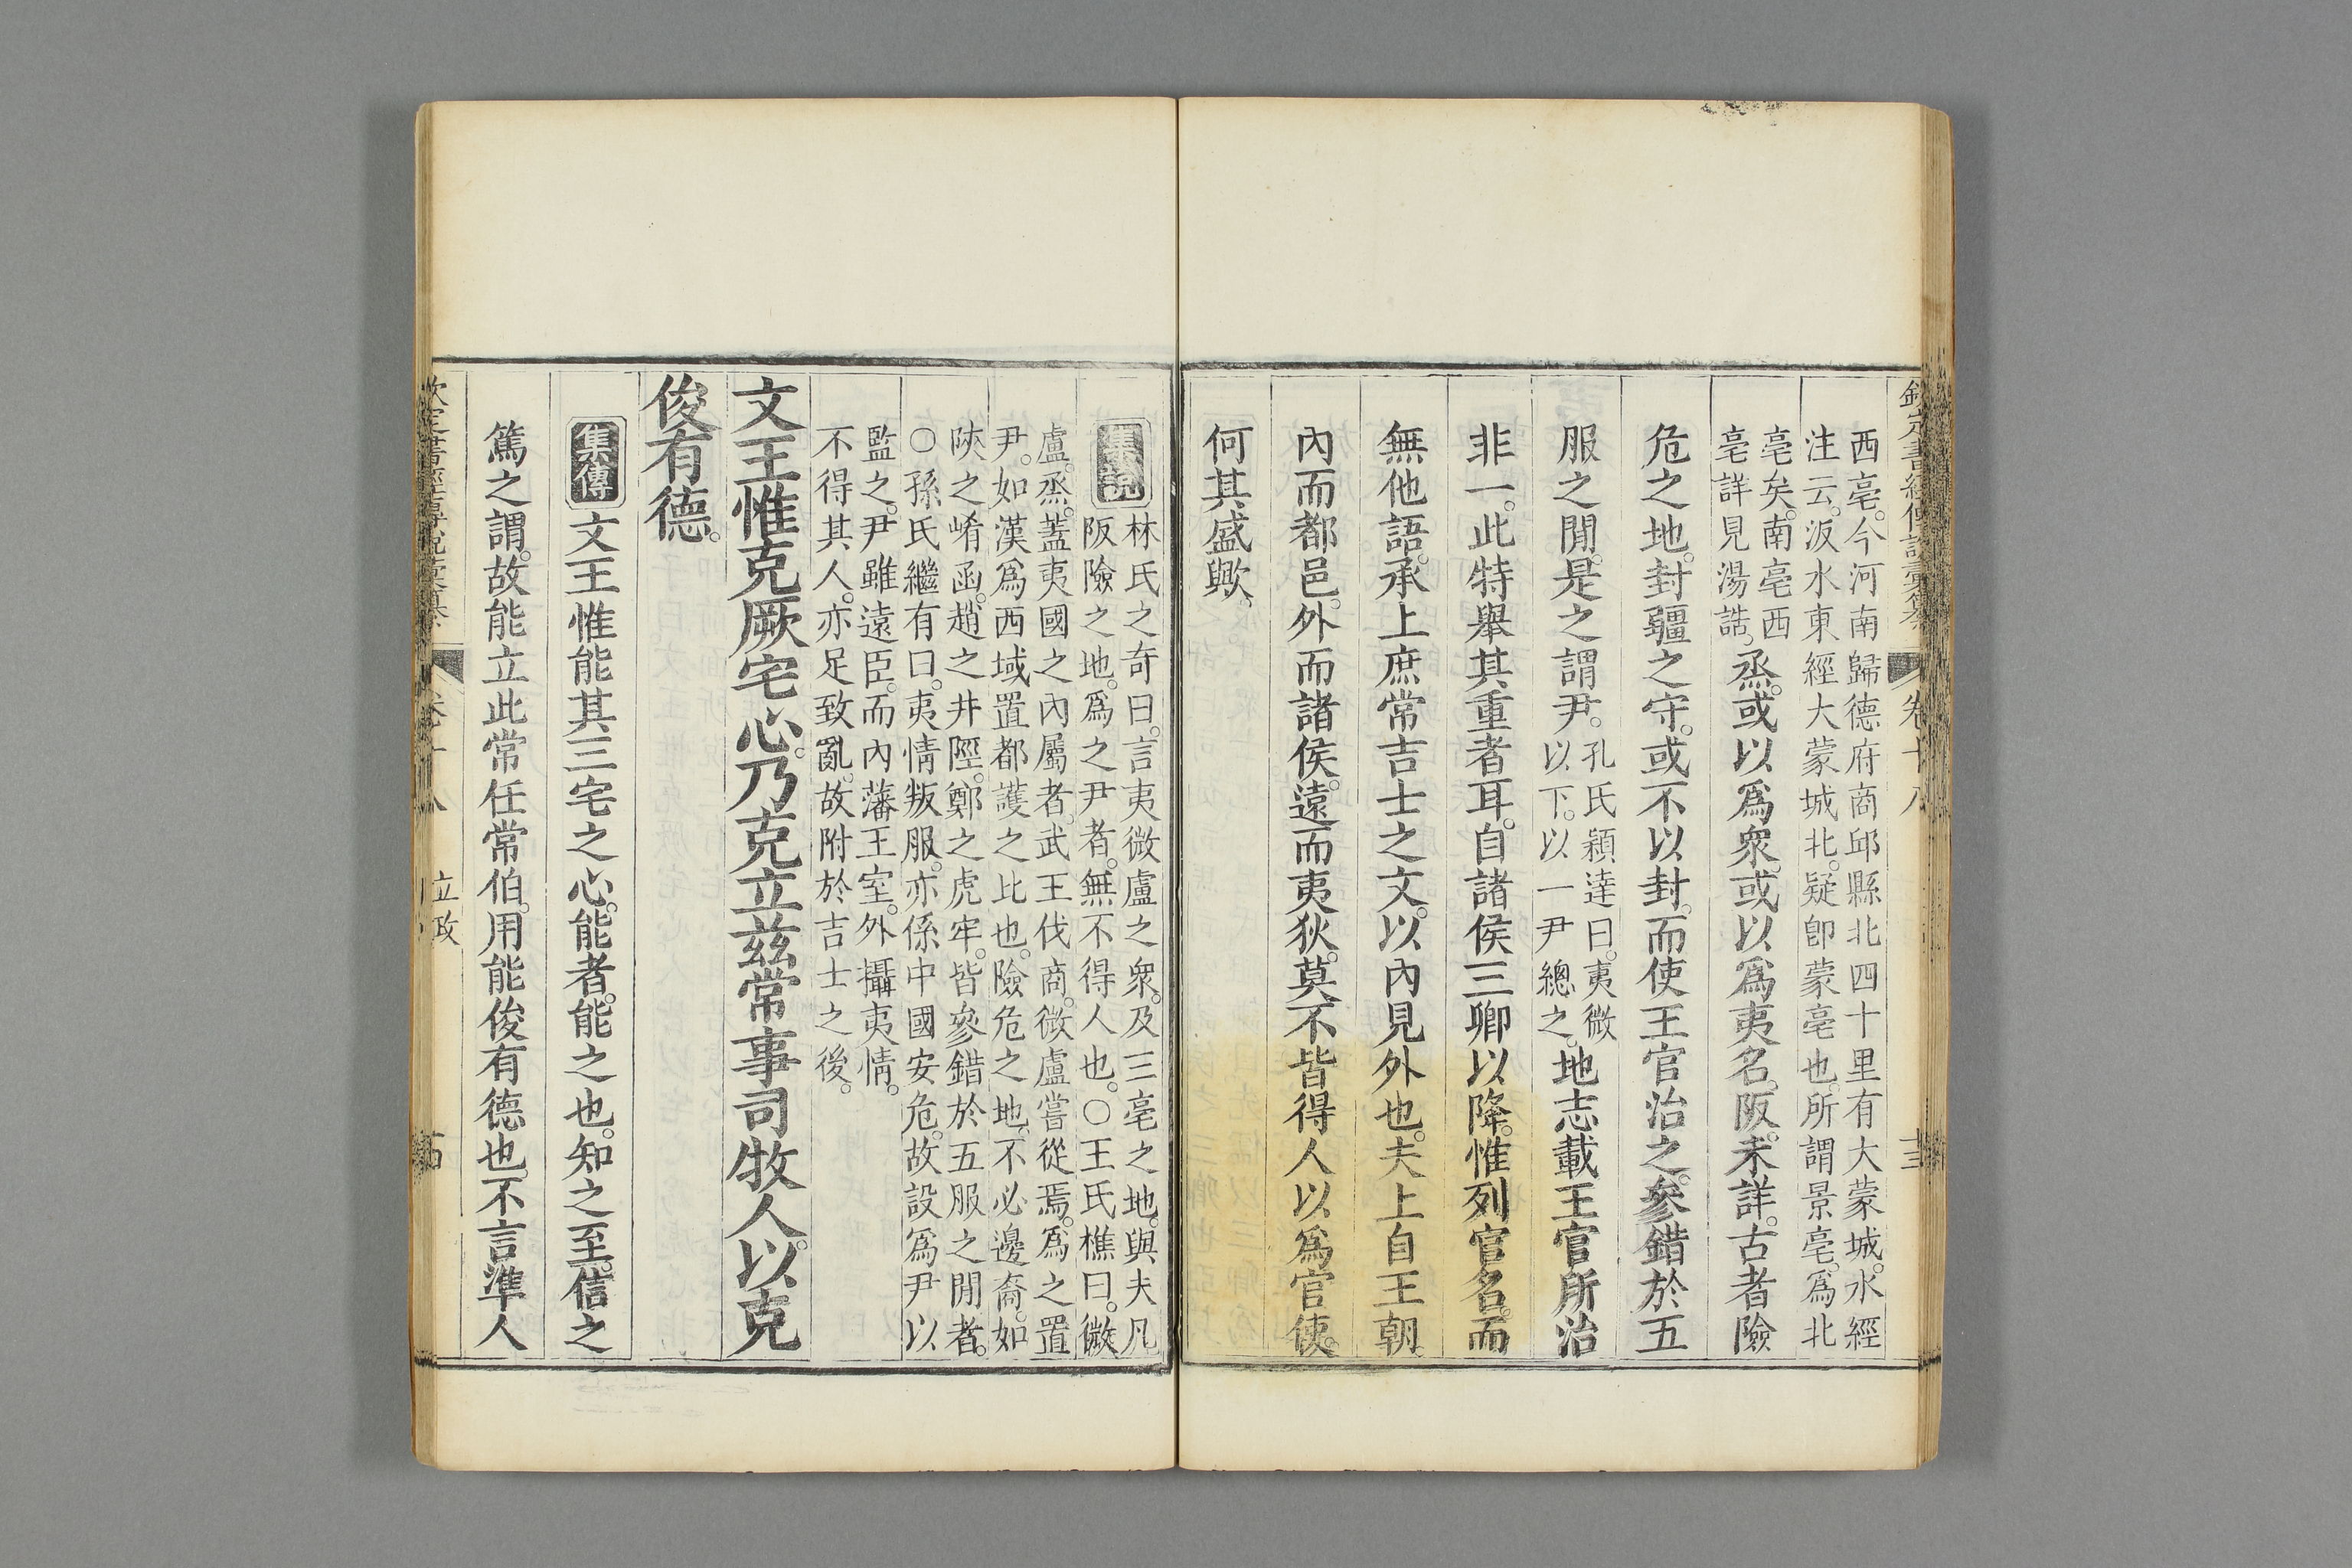 欽定書經傳說彙纂 卷十八 十三
西亳。今河南歸德府商邱縣北四十里有大蒙城。水經
注云。汳水東經大蒙城北。疑卽蒙亳也。所謂景亳。爲北
亳矣。南亳西
亳詳見湯誥。
烝。或以爲衆。或以爲夷名。阪。未詳。古者險
危之地。封疆之守。或不以封。而使王官治之。參錯於五
服之閒。是之謂尹。
孔氏穎達曰。夷微
以下。以一尹總之。
地志載王官所治
非一。此特舉其重者耳。自諸侯三卿以降。惟列官名。而
無他語。承上庶常吉士之文。以內見外也。夫上自王朝。
內而都邑。外而諸侯。遠而夷狄。莫不皆得人以爲官使。
何其盛歟。
集說
林氏之奇曰。言夷微盧之衆。及三亳之地。與夫凡
阪險之地。爲之尹者。無不得人也。○王氏樵曰。微
盧。烝。蓋夷國之內屬者。武王伐商。微盧嘗從焉。爲之置
尹。如漢爲西域置都護之比也。險危之地。不必邊裔。如
陝之崤函。趙之井陘。鄭之虎牢。皆參錯於五服之閒者。
○孫氏繼有曰。夷情叛服。亦係中國安危。故設爲尹以
監之。尹雖遠臣。而內藩王室。外攝夷情。
不得其人。亦足致亂。故附於吉士之後。
文王惟克厥宅心。乃克立茲常事司牧人。以克
俊有德。
集傳
文王惟能其三宅之心。能者。能之也。知之至。信之
篤之謂。故能立此常任常伯。用能俊有德也。不言準人
欽定書經傳說彙纂 卷十八 立政 十四